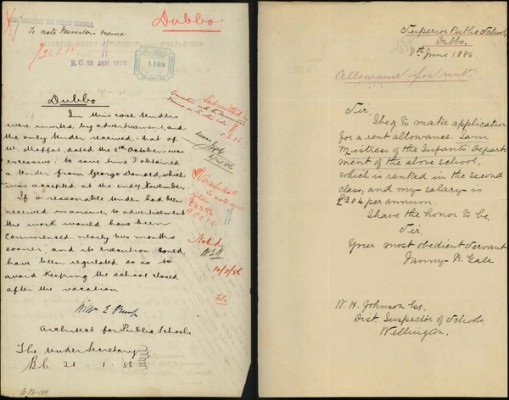 Dubbo
To note Minister's memo
B.C. 13 JAN 1886
Dubbo
In this case tenders
were invited by advertisement, and
the only tender received that of
Mr. Moffat dated the 8th October was
excessive; to save time I obtained
a tender from George Donald, which
was accepted at the end of November.
If a reasonable tender had been
received in answer to advertisement
the work would have been
commenced nearly two months
sooner, and its execution could
have been regulated so as to
avoid keeping the school closed
after the vacation
Architect for Public Schools
The Under Secretary
B.C. 21.1.86
Superior Public School
Dubbo,
9th June 1886.
Allowance for rent.
Sir,
I beg to make application
for a rent allowance. I am
Mistress of the Infants' Depart
ment of the above school,
which is ranked in the second
class, and my salary is
£204 per annum.
I have the honor to be,
Sir,
Your most obedient servant
Fanny Gale
W. H. Johnson Esq.
Dist. Inspector of Schools
Wellington.